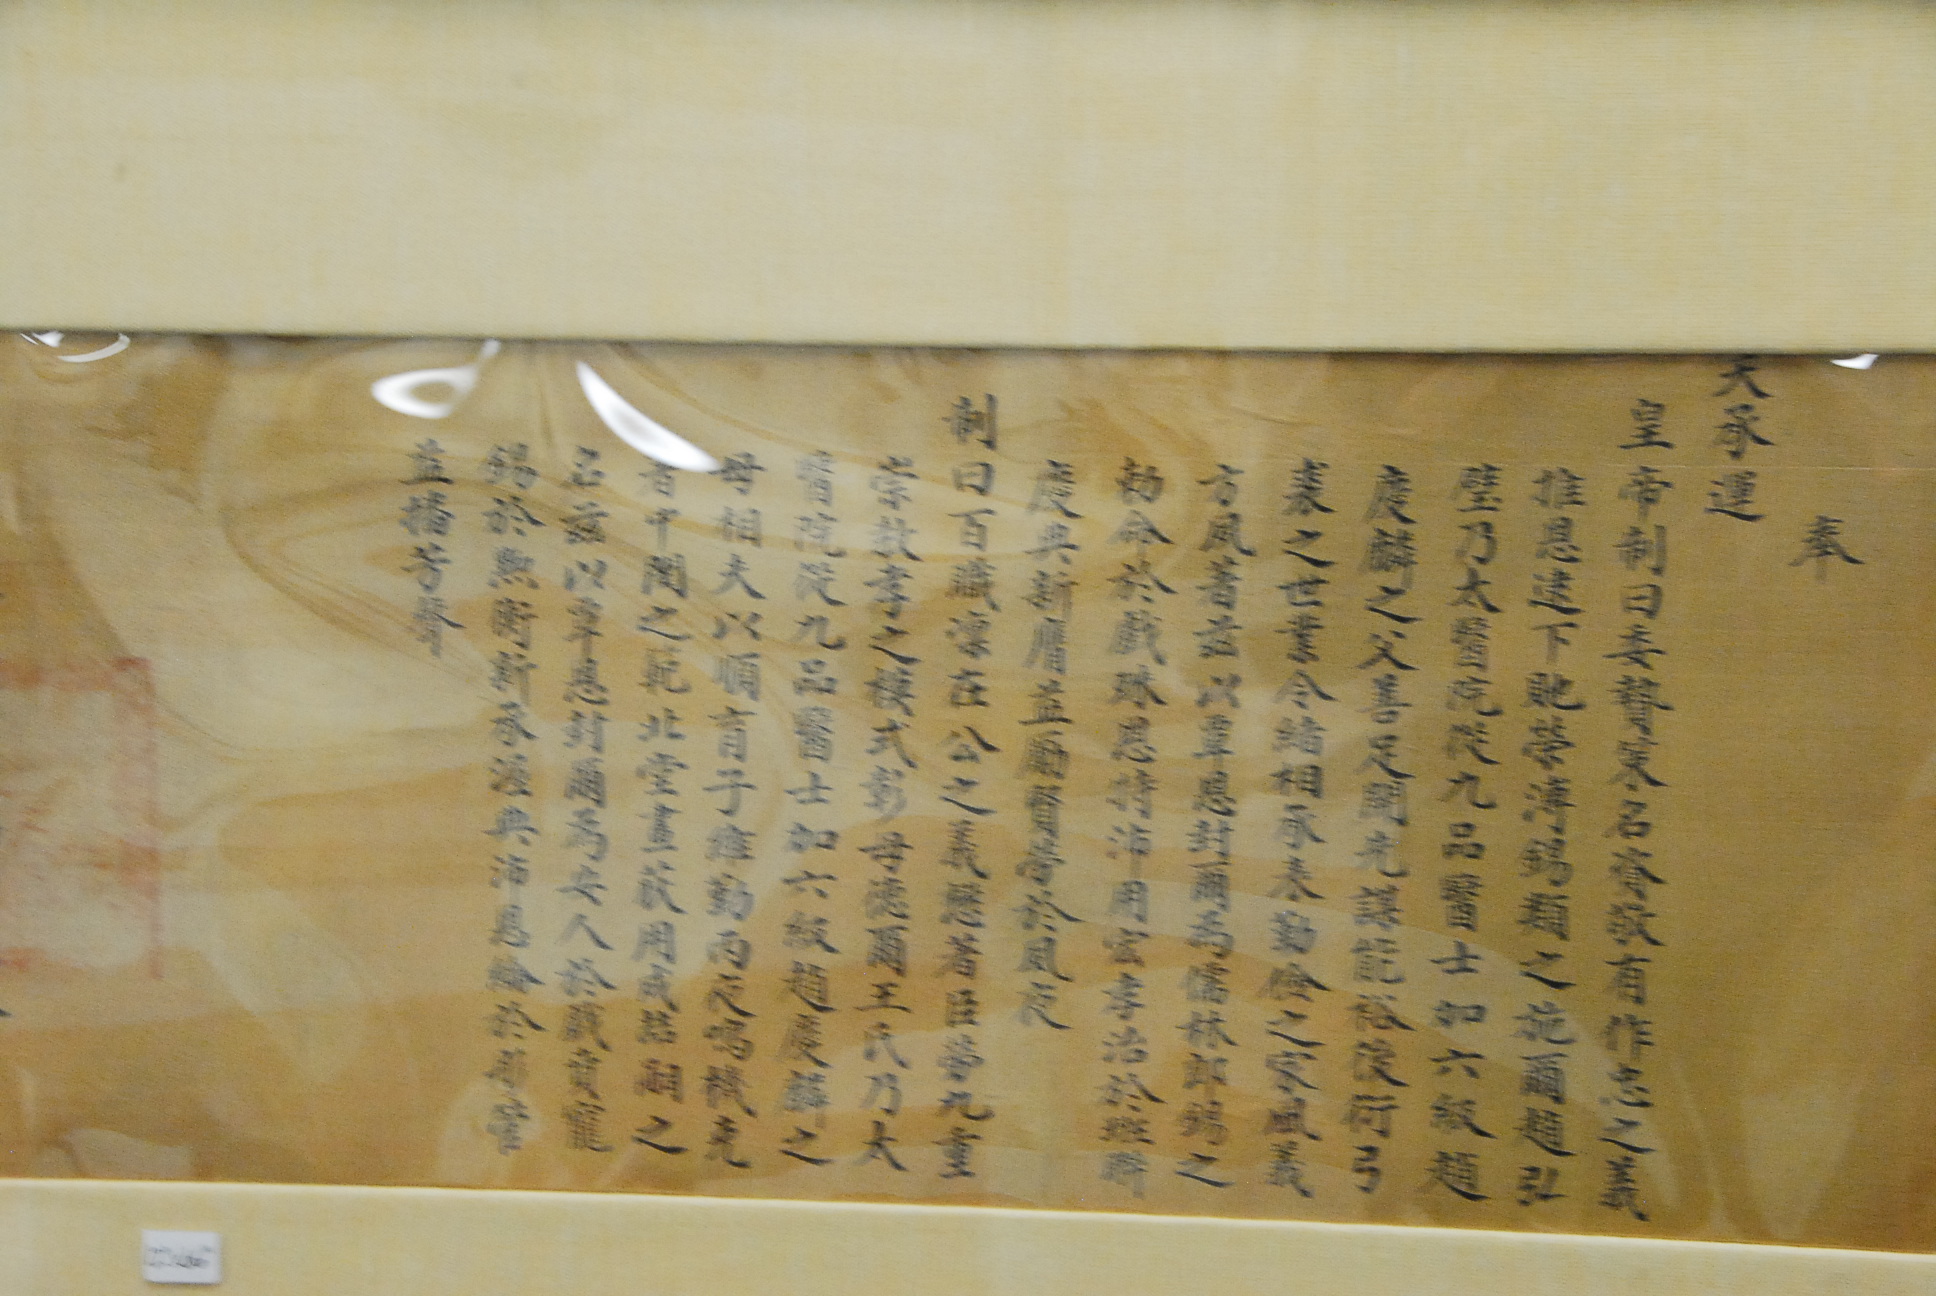 奉
天承運
皇帝制曰委贄策名資敬有作忠之義
推恩逮下貤榮溥錫類之施爾趙弘
璧乃太醫院從九品醫士加六級趙
慶麟之父善足開先謀能裕後衍弓
裘之世業令緒相承表勤儉之家風義
方夙著茲以覃恩封爾為儒林郎錫之
勅命於戲殊恩特沛用宏孝治於班聯
慶典新膺益勵賢勞於夙夜
制曰百職凜在公之義懋著臣勞九重
崇教孝之模式彰母德爾王氏乃太
醫院從九品醫士加六級趙慶麟之
母相夫以順育子維勤丙夜鳴機克
者中閨之範北堂畫荻用成喆嗣之
名茲以覃恩封爾為安人於戲賁寵
錫於珩新承渥典沛恩綸於彤管
益播芳聲